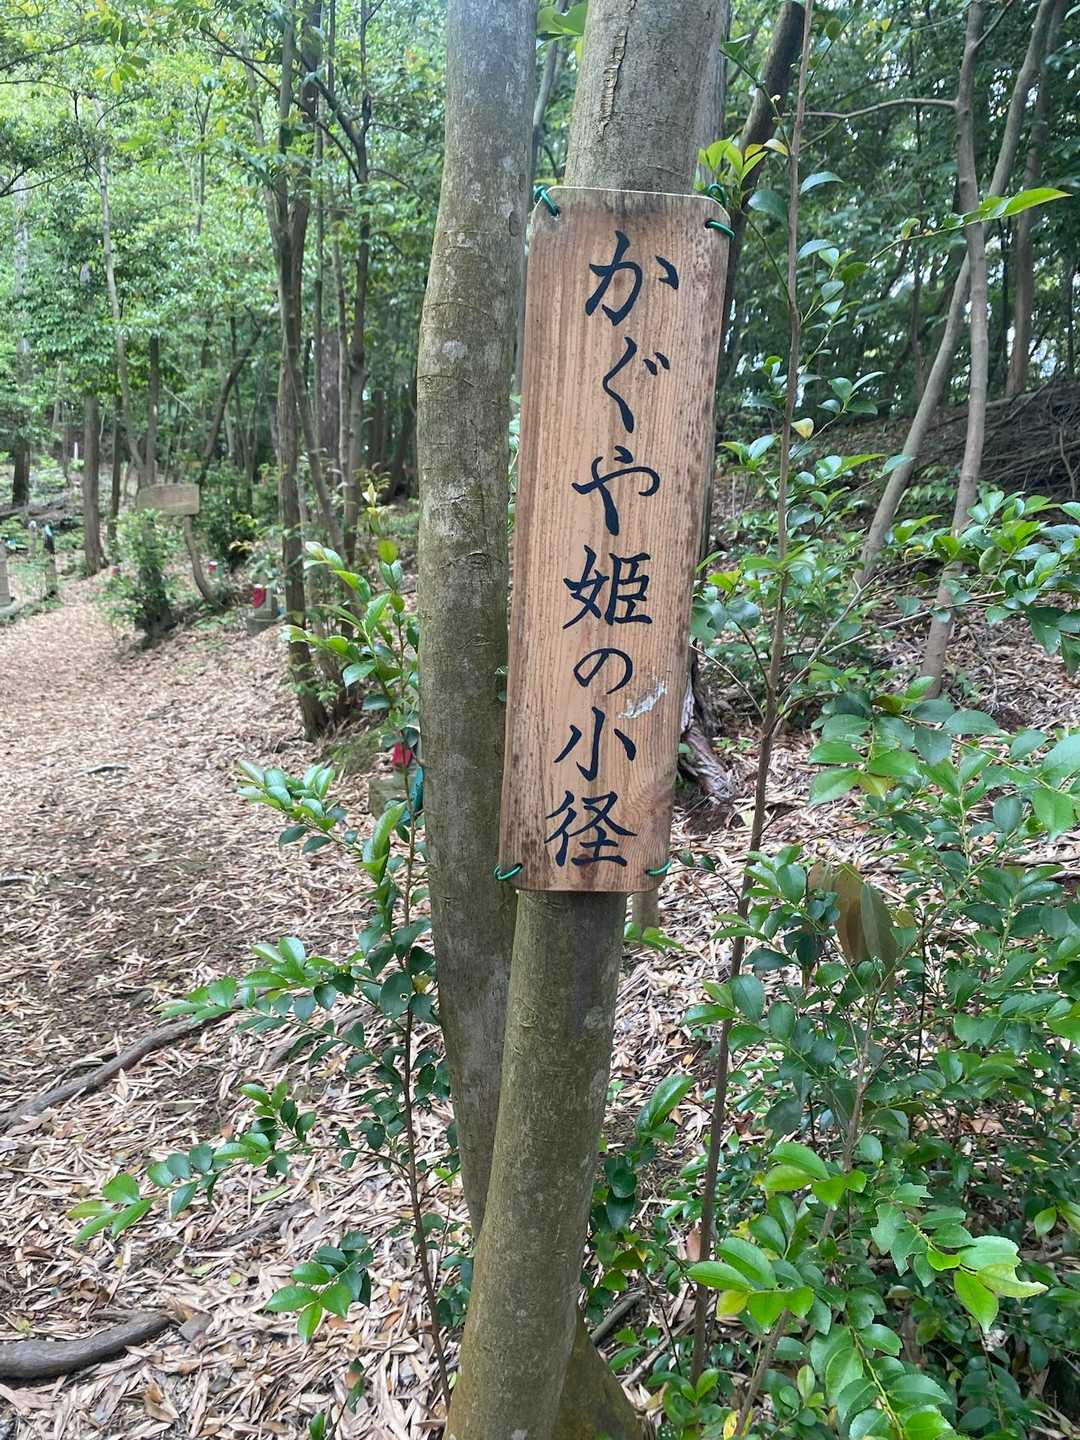 かぐや姫の小径